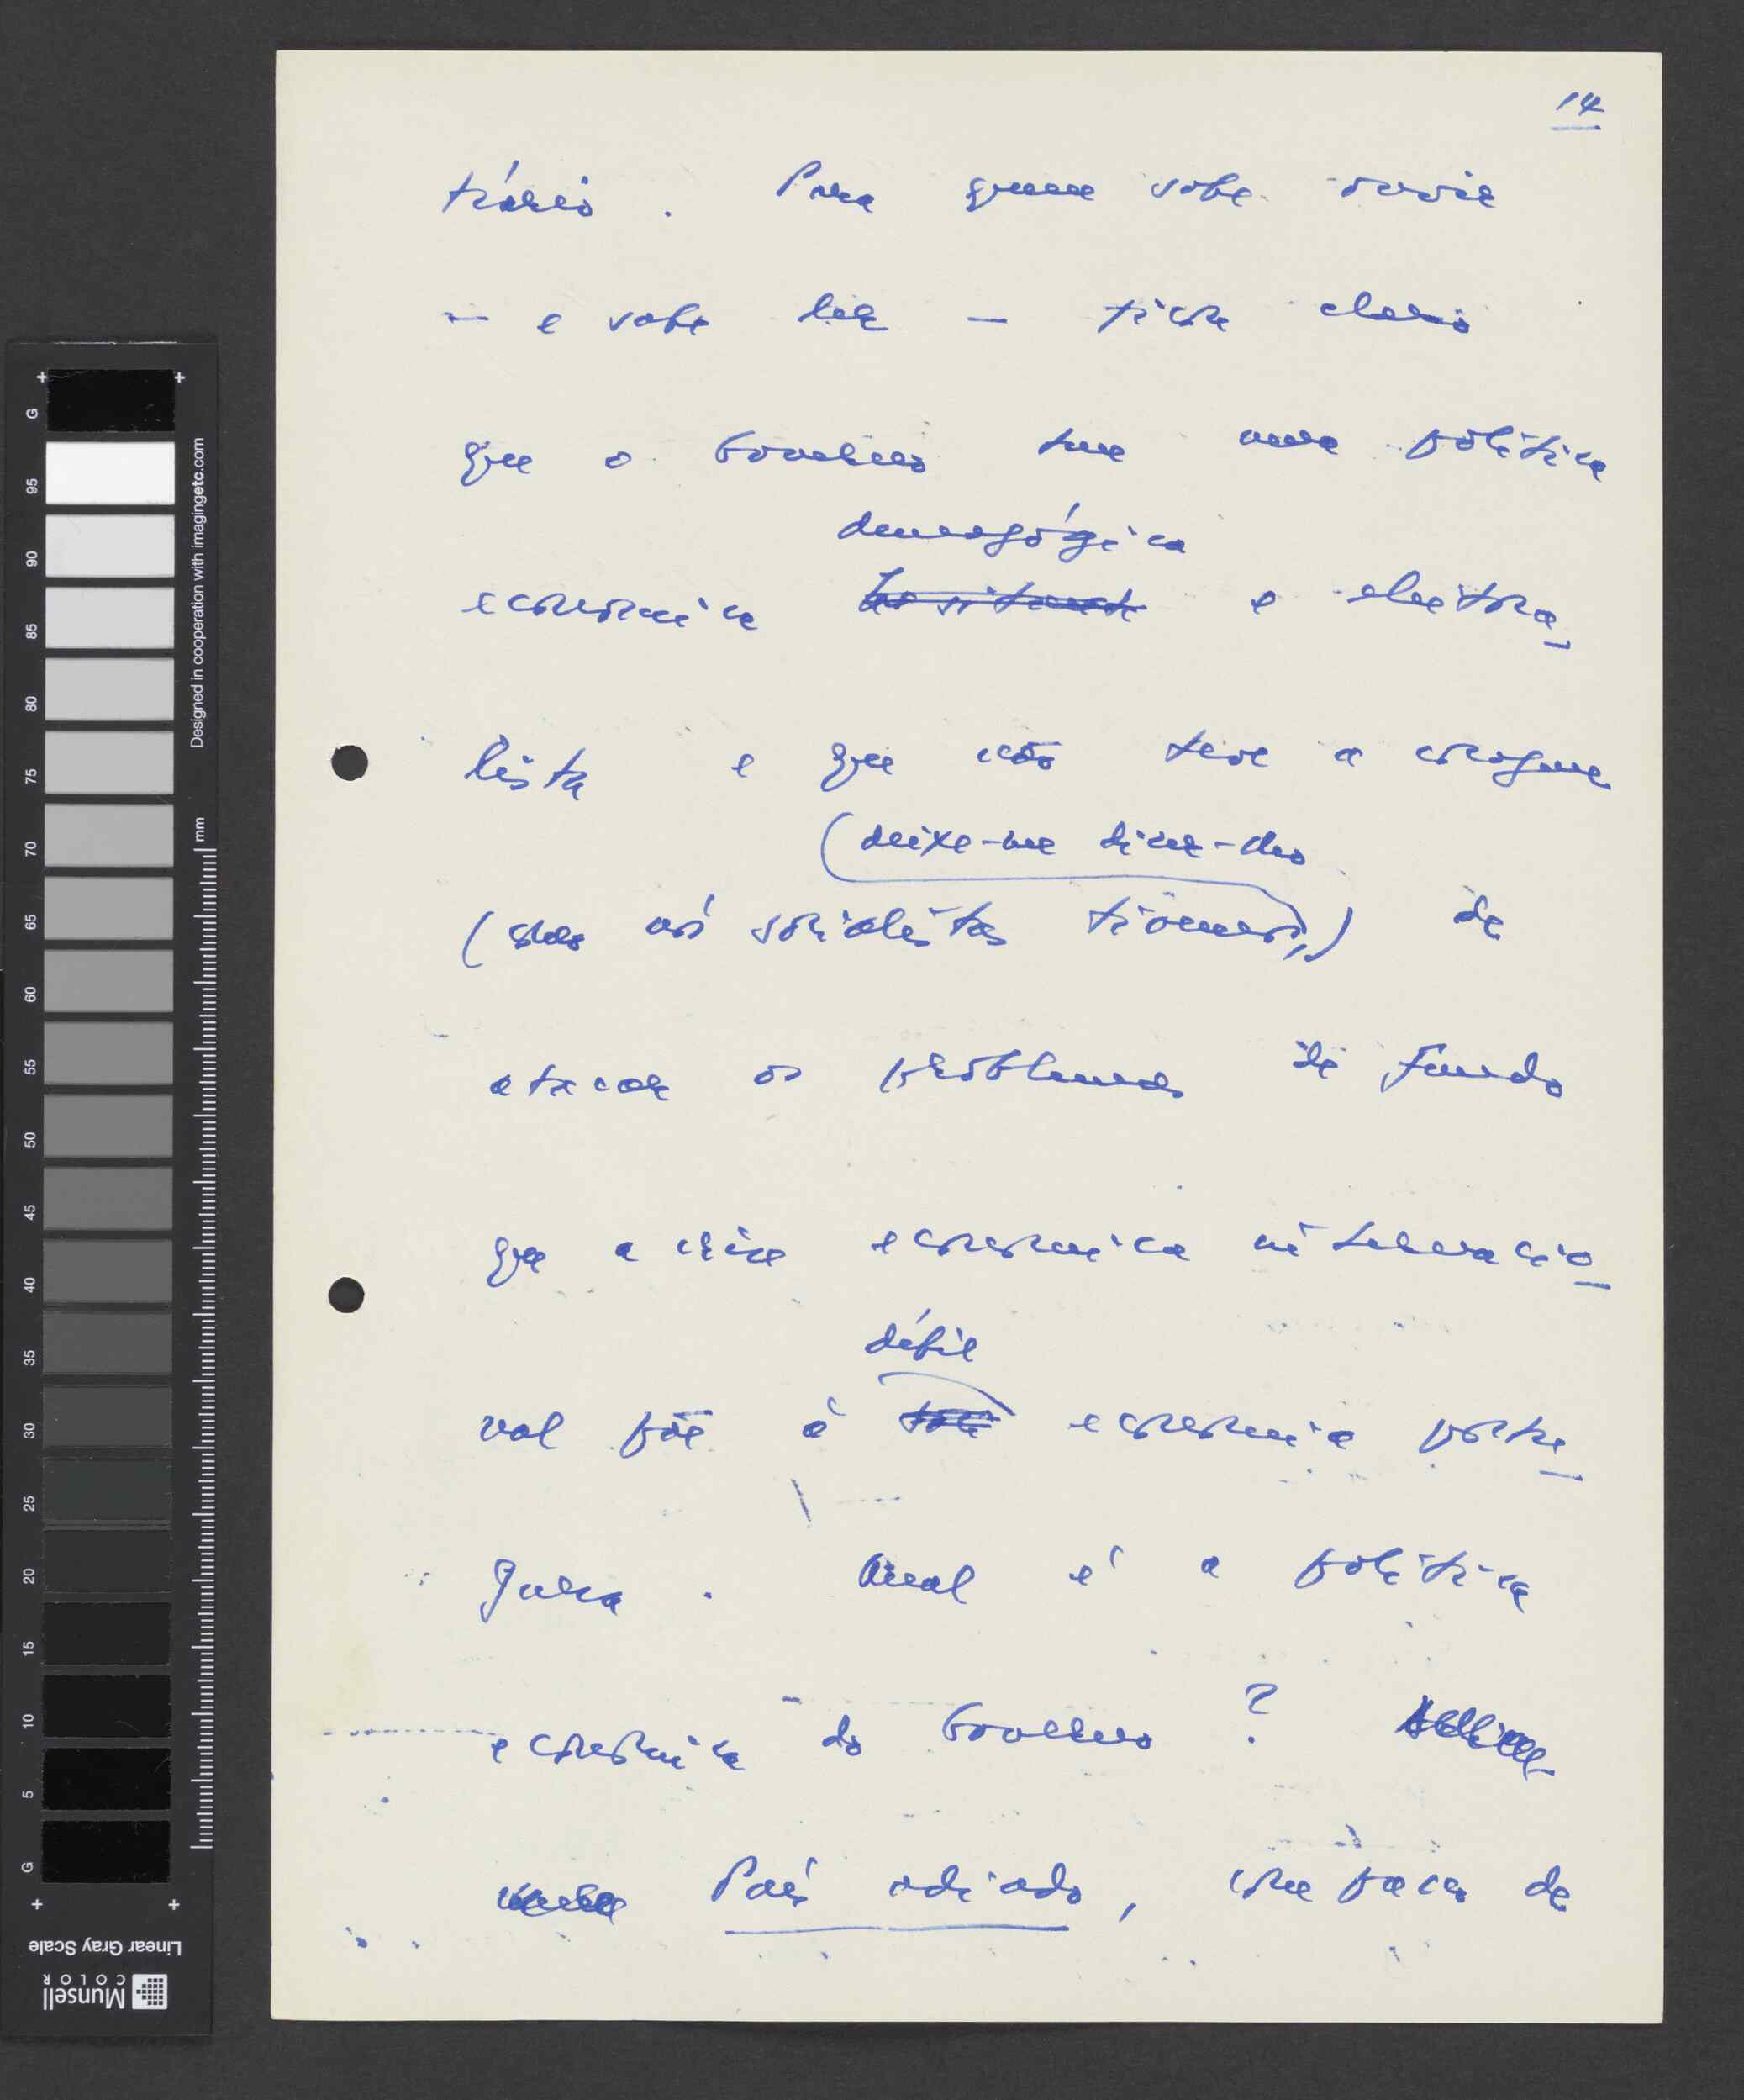 14
trário. Para quem sabe ouvir
— e sabe ler — ficou claro
que o Governo tem uma política
demagógica
económica hesitante e eleitora_
lista e que não teve a coragem
(deixe-me dizer-lhes
(que nós socialistas tivemos,) de
atacar os problemas de fundo
que a crise económica internacio_
nal põe à débil
economia portu_
guesa. Qual é a política
económica do Governo?
País adiado, incapaz de
G
95
90
85
80
75
70
65
60
55
50
45
40
35
30
25
20
15
10
5
G
mm
Designed in cooperation with imagingetc.com
Linear Gray Scale
Munsell
COLOR